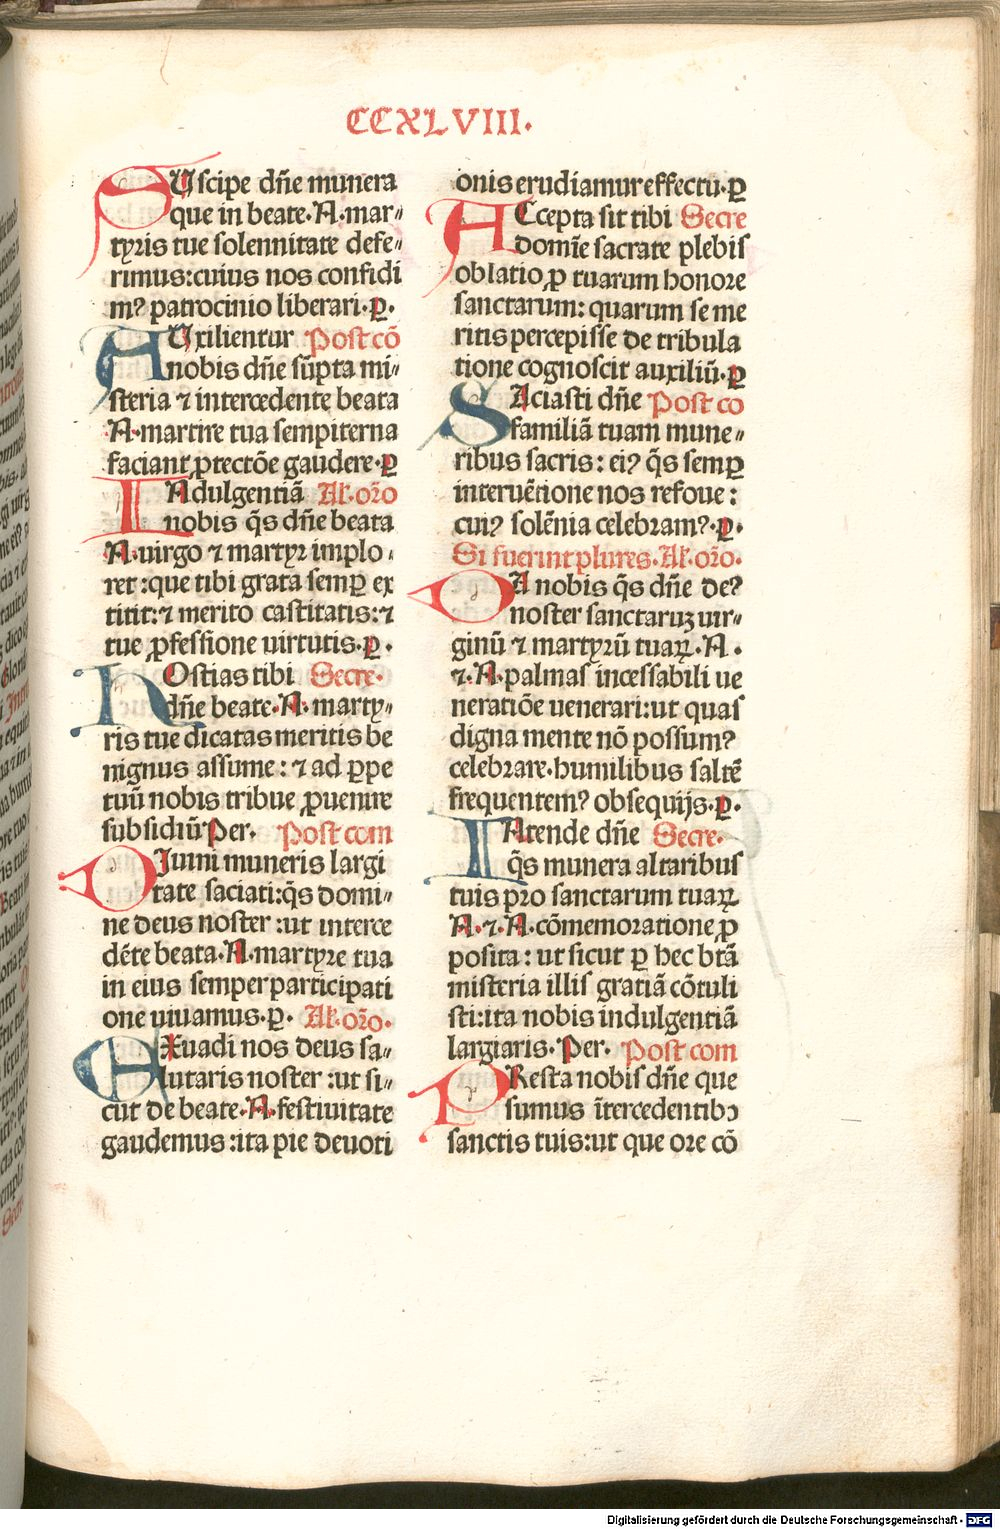 CCXLVIII.
SUscipe dn̄e munera
que in beate·N·mar⸗
tyris tue solennitate defe⸗
rimus:cuius nos confidi
mꝰ patrocinio liberari·ꝑ·
AUxilientur Post cō
nobis dn̄e sūpta mi⸗
steria ⁊ intercedente beata
·N·martire tua sempiterna
faciant ꝓtectōe gaudere·ꝑ
INdulgentiā Al·or̄o
nobis q̄s dn̄e beata
·N·virgo ⁊ martyr implo⸗
ret:que tibi grata semꝑ ex
titit:⁊ merito castitatis:⁊
tue ꝓfessione uirtutis·ꝑ·
HOstias tibi Secre·
dn̄e beate·N·marty⸗
ris tue dicatas meritis be
nignus assume:⁊ ad ꝑpe
tuū nobis tribue ꝓuenire
subsidiū Per. Post com
DIuini muneris largi
tate saciati:q̄s domi⸗
ne deus noster:ut interce
dēte beata·N·martyre tua
in eius semper participati
one uiuamus·ꝑ· Al·or̄o·
EXuadi nos deus sa⸗
lutaris noster:ut si⸗
cut de beate·N·festiuitate
gaudemus:ita pie deuoti
onis erudiamur effectu·ꝑ
ACcepta sit tibi Secre
domīe sacrate plebis
oblatio ꝓ tuarum honore
sanctarum:quarum se me
ritis percepisse de tribula
tione cognoscit auxiliū·ꝑ
SAciasti dn̄e Post co
familiā tuam mune⸗
ribus sacris:eiꝰ q̄s semꝑ
interuētione nos refoue:
cuiꝰ solēnia celebramꝰ·ꝑ·
Si fuerint plures·Al·or̄o·
DA nobis q̄s dn̄e deꝰ
noster sanctaruʒ uir⸗
ginū ⁊ martyrū tuaꝝ·N·
⁊·N·palmas incessabili ue
neratiōe uenerari:ut quas
digna mente nō possumꝰ
celebrare·humilibus saltē
frequentemꝰ obsequijs·ꝑ·
INtende dn̄e Secre·
q̄s munera altaribus
tuis pro sanctarum tuaꝝ
·N·⁊·N·cōmemoratione ꝓ
posita:ut sicut ꝑ hec btā
misteria illis gratiā cōtuli
sti:ita nobis indulgentiā
largiaris·Per. Post com
PResta nobis dn̄e que
sumus ītercedentibꝫ
sanctis tuis:ut que ore cō
Digitalisierung gefördert durch die Deutsche Forschungsgemeinschaft - DFG